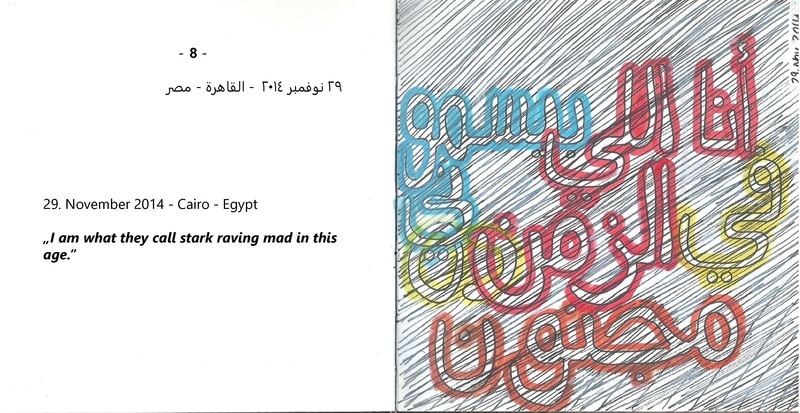 - 8 -
٢٩ نوفمبر ٢٠١٤ - القاهرة - مصر
29. November 2014 - Cairo - Egypt
„I am what they call stark raving mad in this
age.“
29. Nov. 2014
أنا اللي
في الزمن
مجنون